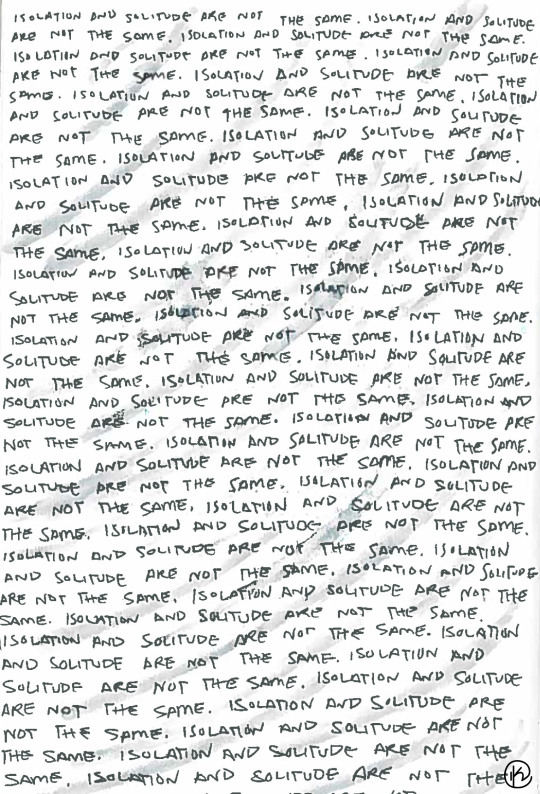 ISOLATION AND SOLITUDE ARE NOT THE SAME. ISOLATION AND SOLITUDE
ARE NOT THE SAME. ISOLATION AND SOLITUDE ARE NOT THE SAME.
ISOLATION AND SOLITUDE ARE NOT THE SAME. ISOLATION AND SOLITUDE
ARE NOT THE SAME. ISOLATION AND SOLITUDE ARE NOT THE
SAME. ISOLATION AND SOLITUDE ARE NOT THE SAME. ISOLATION
AND SOLITUDE ARE NOT THE SAME. ISOLATION AND SOLITUDE
ARE NOT THE SAME. ISOLATION AND SOLITUDE ARE NOT
THE SAME. ISOLATION AND SOLITUDE ARE NOT THE SAME.
ISOLATION AND SOLITUDE ARE NOT THE SAME. ISOLATION
AND SOLITUDE ARE NOT THE SAME. ISOLATION AND SOLITUDE
ARE NOT THE SAME. ISOLATION AND SOLITUDE ARE NOT
THE SAME. ISOLATION AND SOLITUDE ARE NOT THE SAME.
ISOLATION AND SOLITUDE ARE NOT THE SAME. ISOLATION AND
SOLITUDE ARE NOT THE SAME. ISOLATION AND SOLITUDE ARE
NOT THE SAME. ISOLATION AND SOLITUDE ARE NOT THE SAME.
ISOLATION AND SOLITUDE ARE NOT THE SAME. ISOLATION AND
SOLITUDE ARE NOT THE SAME. ISOLATION AND SOLITUDE ARE
NOT THE SAME. ISOLATION AND SOLITUDE ARE NOT THE SAME.
ISOLATION AND SOLITUDE ARE NOT THE SAME. ISOLATION AND
SOLITUDE ARE NOT THE SAME. ISOLATION AND SOLITUDE ARE
NOT THE SAME. ISOLATION AND SOLITUDE ARE NOT THE SAME.
ISOLATION AND SOLITUDE ARE NOT THE SAME. ISOLATION AND
SOLITUDE ARE NOT THE SAME. ISOLATION AND SOLITUDE
ARE NOT THE SAME. ISOLATION AND SOLITUDE ARE NOT
THE SAME. ISOLATION AND SOLITUDE ARE NOT THE SAME.
ISOLATION AND SOLITUDE ARE NOT THE SAME. ISOLATION
AND SOLITUDE ARE NOT THE SAME. ISOLATION AND SOLITUDE
ARE NOT THE SAME. ISOLATION AND SOLITUDE ARE NOT THE
SAME. ISOLATION AND SOLITUDE ARE NOT THE SAME.
ISOLATION AND SOLITUDE ARE NOT THE SAME. ISOLATION
AND SOLITUDE ARE NOT THE SAME. ISOLATION AND
SOLITUDE ARE NOT THE SAME. ISOLATION AND SOLITUDE
ARE NOT THE SAME. ISOLATION AND SOLITUDE ARE
NOT THE SAME. ISOLATION AND SOLITUDE ARE NOT
THE SAME. ISOLATION AND SOLITUDE ARE NOT THE
SAME. ISOLATION AND SOLITUDE ARE NOT THE